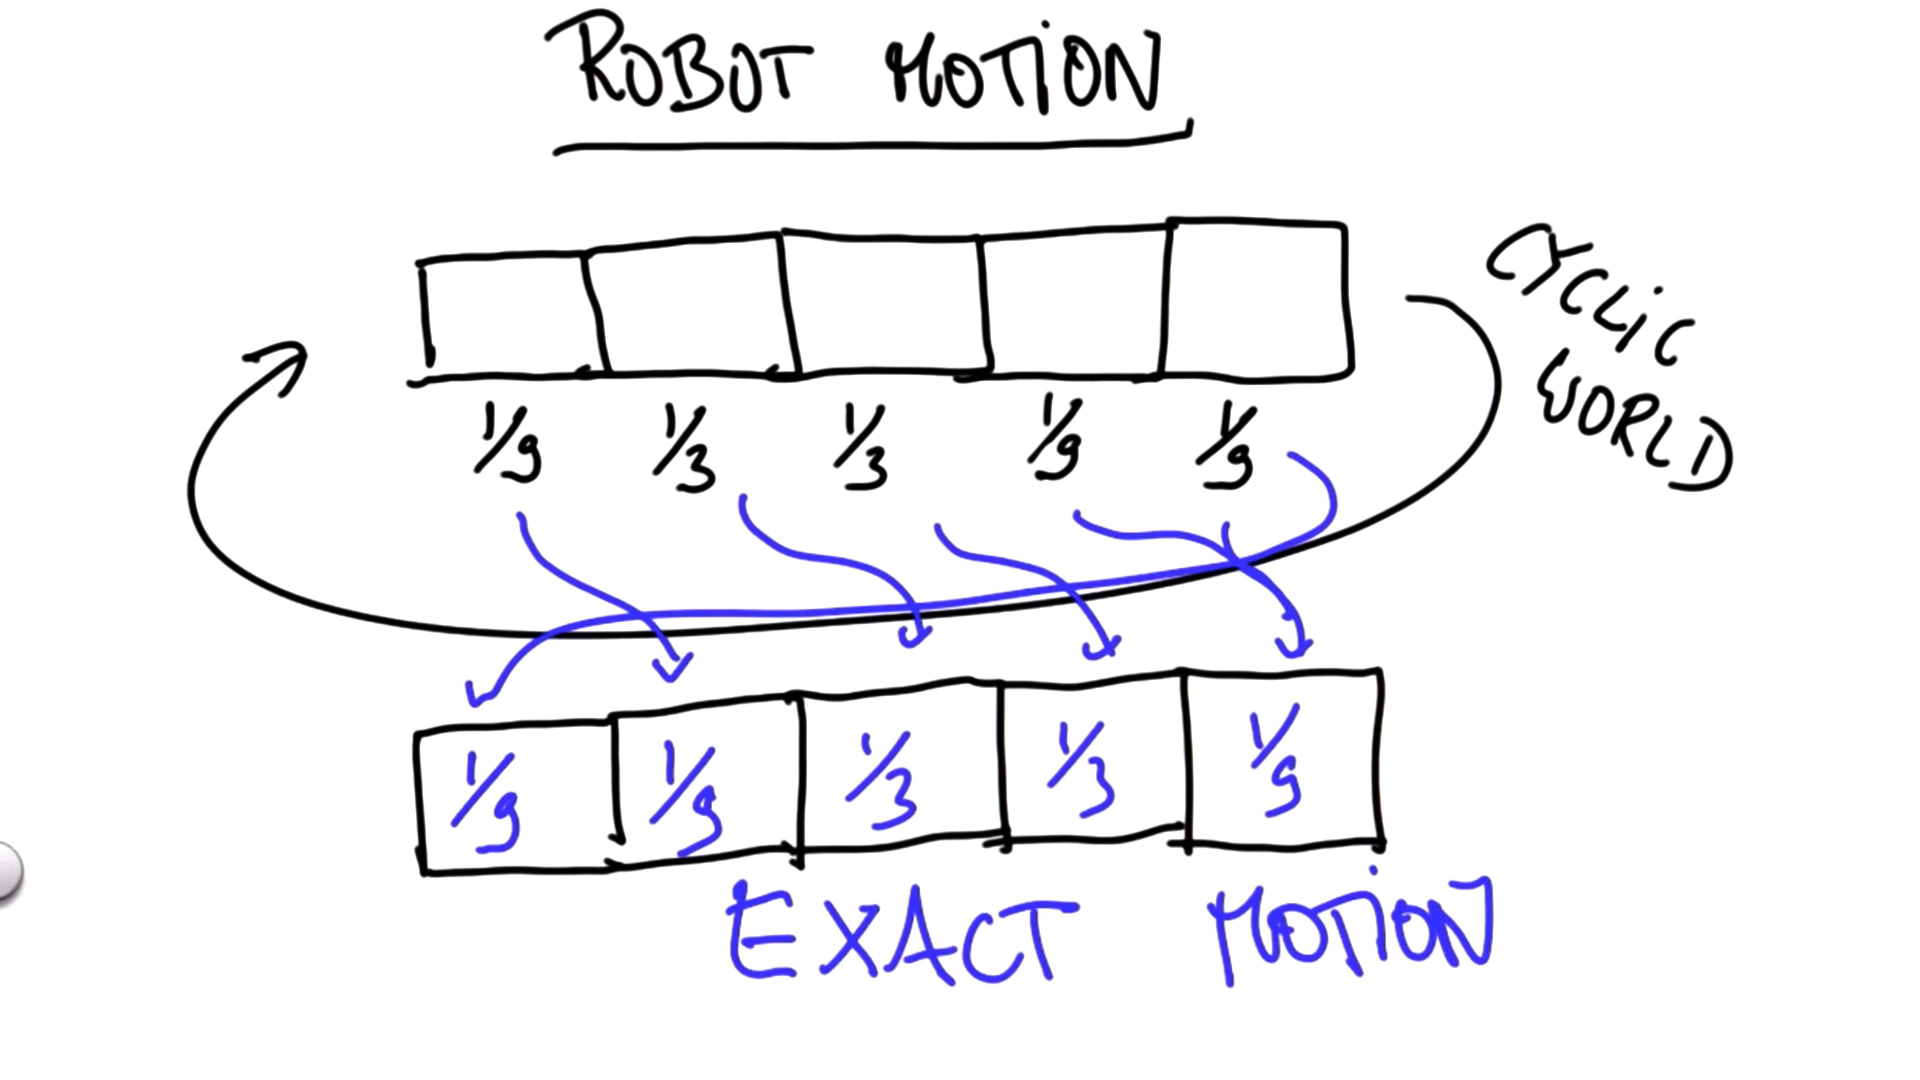 ROBOT MOTION
CYCLIC
WORLD
1/9 1/3 1/3 1/9 1/9
1/9 1/9 1/3 1/3 1/9
EXACT MOTION